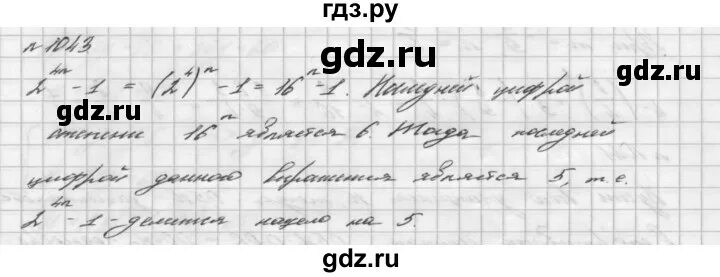 гдз.ру
№ 1043
gdz.ru
2^{4n} - 1 = (2^4)^n - 1 = 16^n - 1. Последней цифрой
степени 16^n является 6. Тогда последней
gdz.ru
цифрой данного выражения является 5, т.е.
2^{4n} - 1 - делится нацело на 5.
gdz.ru